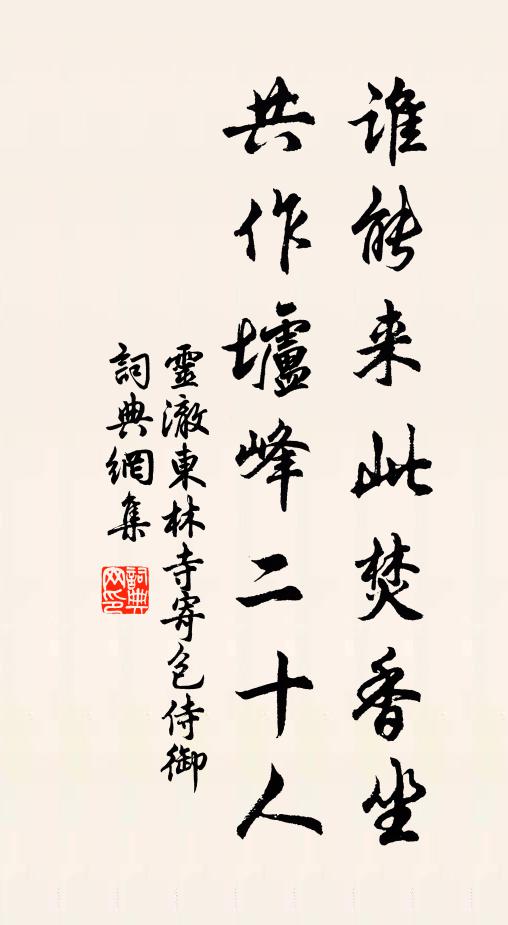 誰能来此焚香坐
共作壚峰二十人
靈澈東林寺寄包侍御
詞典網集
詞典網印